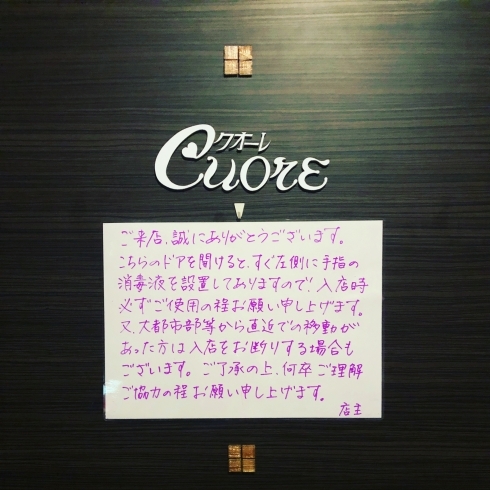 クオーレ
Cuore
ご来店、誠にありがとうございます。
こちらのドアを開けると、すぐ左側に手指の
消毒液を設置しておりますので!入店時
必ずご使用の程お願い申し上げます。
又、大都市部等から直近での移動が
あった方は入店をお断りする場合も
ございます。ご了承の上、何卒ご理解
ご協力の程お願い申し上げます。
店主